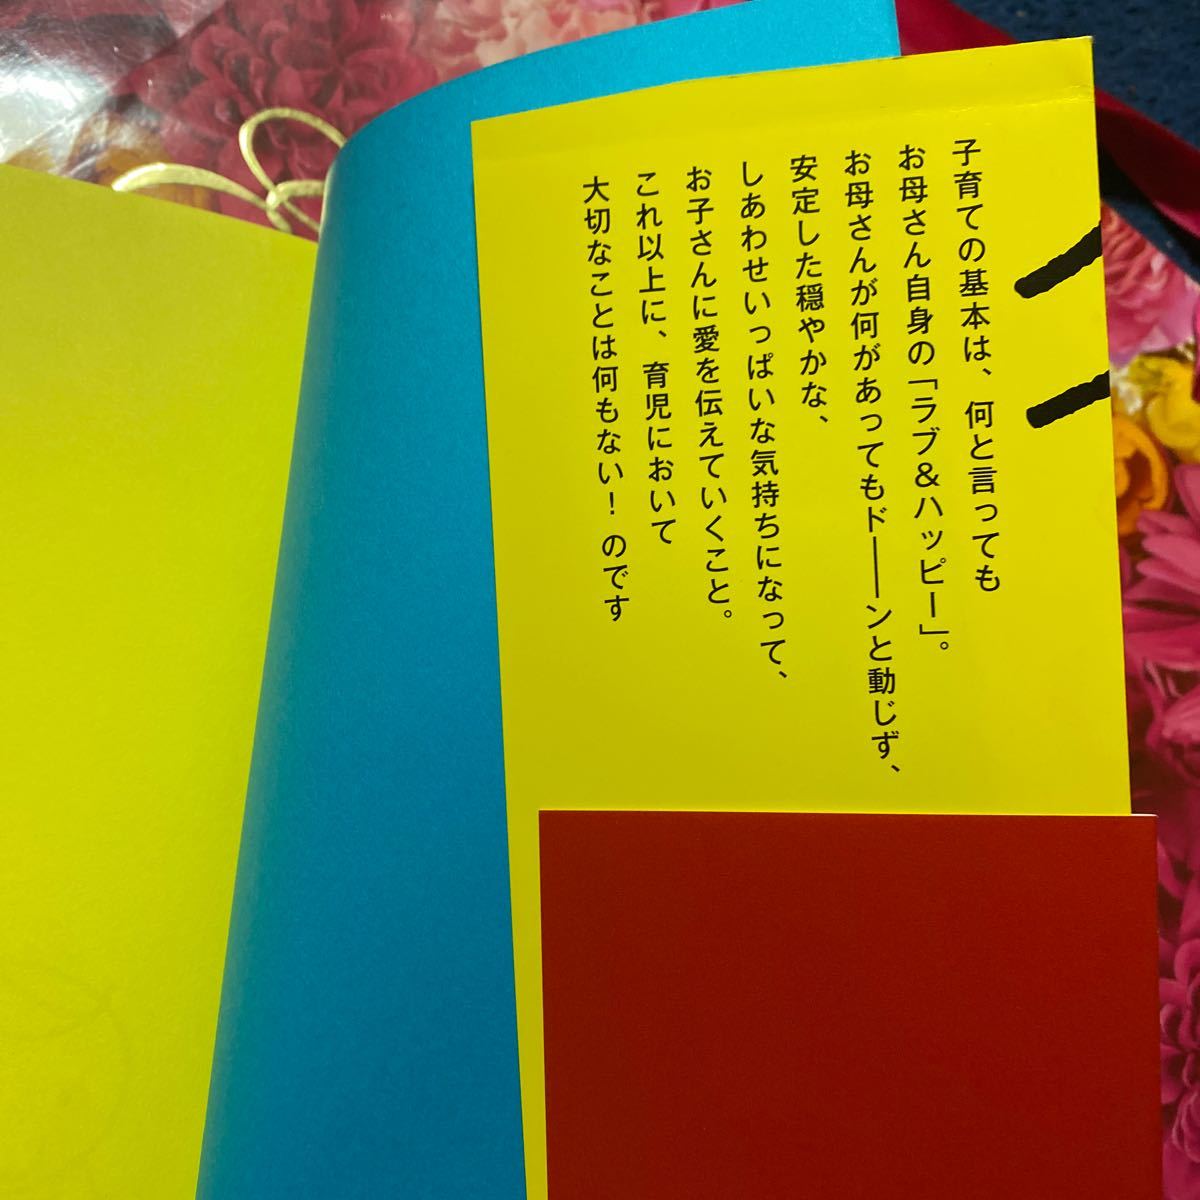 子育ての基本は、何と言っても
お母さん自身の「ラブ&ハッピー」。
お母さんが何があってもド――ンと動じず、
安定した穏やかな、
しあわせいっぱいな気持ちになって、
お子さんに愛を伝えていくこと。
これ以上に、育児において
大切なことは何もない！のです